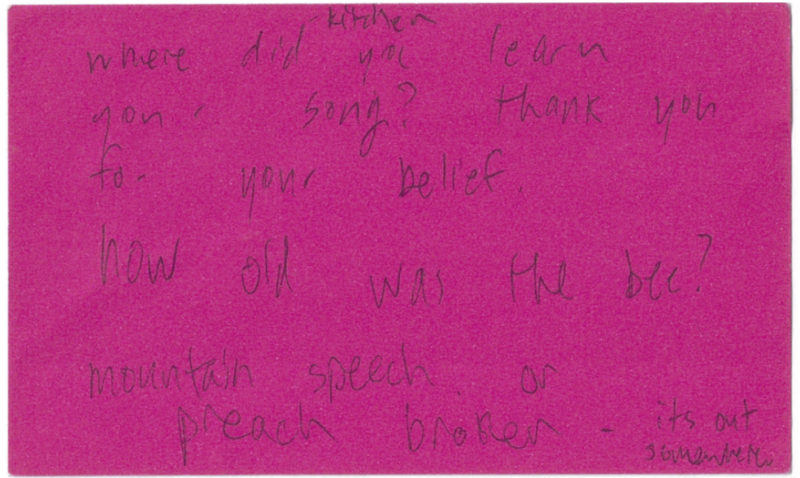 kitchen
where did you learn
your song? thank you
for your belief.
how old was the bee?
mountain speech. or
preach broken - its out
somewhere